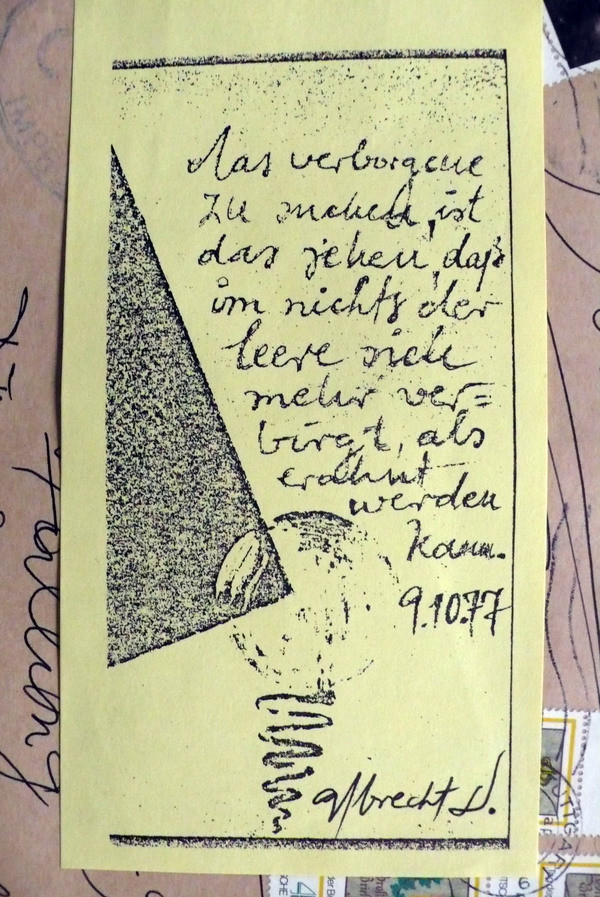 das verborgene
zu suchen, ist
das sehen, daß
im nichts der
leere sich
mehr ver=
birgt, als
erahnt
werden
kann.
9.10.77
albrecht d.